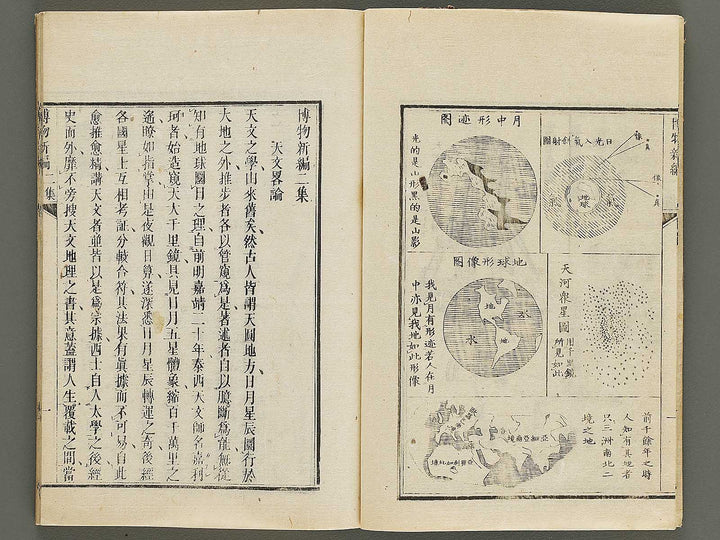 博物新編
日光入氣斜射圖
像
真
像
真
氣
地球
月中形迹圖
光的是山形黑的是山影
天河衆星圖
用千里鏡
所見如此
地球形像圖
地
地
水
水
我見月有形迹若人在月
中亦見我地如此形像
前千餘年之時
人知有其地者
只三洲南北二
境之地
博物新編二集
天文畧論
天文之學由來舊矣然古人皆謂天圓地方日月星辰圜行於
大地之外推步者各以管窺爲是著述者自以臆斷爲能無從
知有地球圜日之理自前明嘉靖二十年泰西天文師名嘉利
珂者始造窺天大千里鏡具見日月五星體象縮百千萬里之
遙瞭如指掌由是夜觀日算遂深悉日月星辰轉運之奇後經
各國星士互相考証分較合符其法果有眞據而不可易自此
愈推愈精講天文者並皆以是爲宗據西士自入太學之後經
史而外靡不旁搜天文地理之書其意蓋謂人生覆載之間當
博物新編二集
一